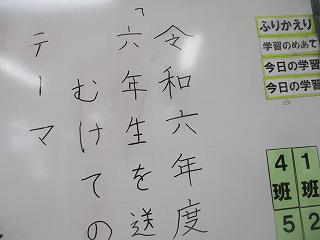 令和六年度
「六年生を送
むけての
テーマ
ふりかえり
学習のめあて
今日の学習
今日の学習
1班
2
4班
5